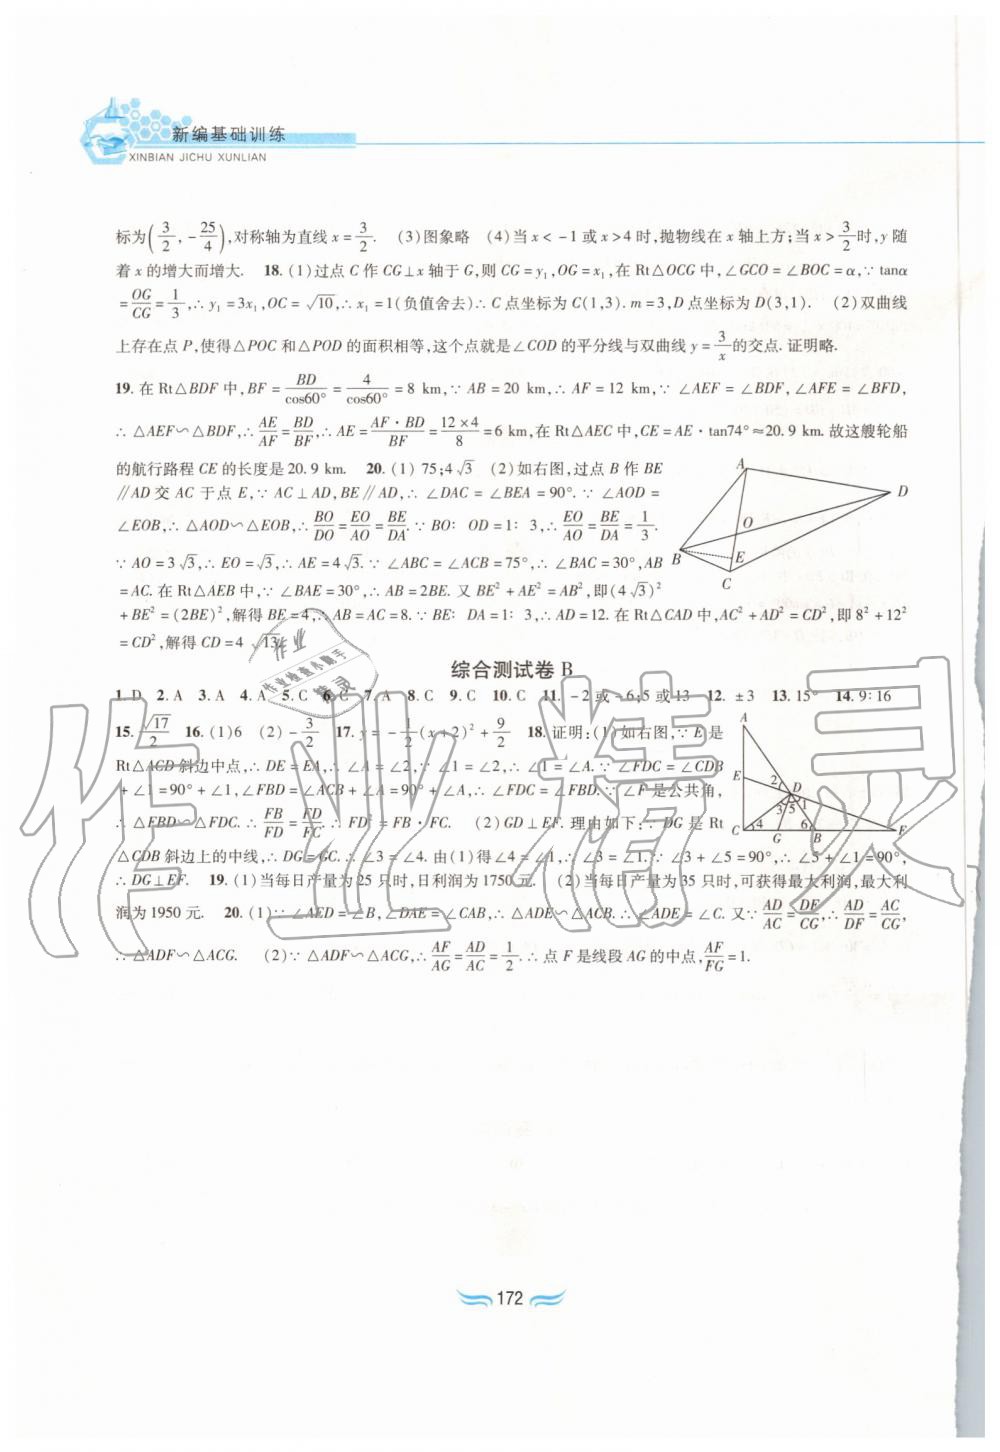 新编基础训练
XINBIAN JICHU XUNLIAN
标为(3/2, -25/4),对称轴为直线 x=3/2. (3)图象略 (4)当 x<-1 或 x>4 时,抛物线在 x 轴上方;当 x>3/2时,y 随
着 x 的增大而增大. 18. (1)过点 C 作 CG⊥x 轴于 G,则 CG=y₁,OG=x₁,在 Rt△OCG 中,∠GCO=∠BOC=α,∵tanα
=OG/CG=1/3,∴y₁=3x₁,OC=√10,∴x₁=1(负值舍去)∴C 点坐标为 C(1,3). m=3,D 点坐标为 D(3,1). (2)双曲线
上存在点 P,使得△POC 和△POD 的面积相等,这个点就是∠COD 的平分线与双曲线 y=3/x的交点. 证明略.
19. 在 Rt△BDF 中,BF=BD/cos60°=4/cos60°=8 km,∵AB=20 km,∴AF=12 km,∵∠AEF=∠BDF,∠AFE=∠BFD,
∴△AEF∽△BDF,∴AE/AF=BD/BF,∴AE=AF·BD/BF=12×4/8=6 km,在 Rt△AEC 中,CE=AE·tan74°≈20.9 km. 故这艘轮船
的航行路程 CE 的长度是 20.9 km. 20. (1) 75;4√3 (2)如右图,过点 B 作 BE
∥AD 交 AC 于点 E,∵AC⊥AD,BE∥AD,∴∠DAC=∠BEA=90°. ∵∠AOD=
∠EOB,∴△AOD∽△EOB,∴BO/DO=EO/AO=BE/DA. ∵BO:OD=1:3,∴EO/AO=BE/DA=1/3.
∵AO=3√3,∴EO=√3,∴AE=4√3. ∵∠ABC=∠ACB=75°,∴∠BAC=30°,AB
=AC. 在 Rt△AEB 中,∵∠BAE=30°,∴AB=2BE. 又 BE²+AE²=AB²,即(4√3)²
+BE²=(2BE)²,解得 BE=4,∴AB=AC=8. ∵BE:DA=1:3,∴AD=12. 在 Rt△CAD 中,AC²+AD²=CD²,即 8²+12²
=CD²,解得 CD=4√13.
A
D
O
B
E
C
综合测试卷 B
1. D 2. A 3. A 4. A 5. C 6. C 7. A 8. C 9. C 10. C 11. -2 或 -6;5 或 13 12. ±3 13. 15° 14. 9:16
15. √17/2 16. (1)6 (2) -3/2 17. y=-1/2(x+2)²+9/2 18. 证明:(1)如右图,∵E 是
Rt△ACD 斜边中点,∴DE=EA,∴∠A=∠2,∵∠1=∠2,∴∠1=∠A. ∵∠FDC=∠CDB
+∠1=90°+∠1,∠FBD=∠ACB+∠A=90°+∠A,∴∠FDC=∠FBD. ∵∠F 是公共角,
∴△FBD∽△FDC. ∴FB/FD=FD/FC. ∴FD²=FB·FC. (2)GD⊥EF. 理由如下:∵DG 是 Rt
△CDB 斜边上的中线,∴DG=GC. ∴∠3=∠4. 由(1)得∠4=∠1,∴∠3=∠1. ∵∠3+∠5=90°,∴∠5+∠1=90°,
∴DG⊥EF. 19. (1)当每日产量为 25 只时,日利润为 1750 元. (2)当每日产量为 35 只时,可获得最大利润,最大利
润为 1950 元. 20. (1)∵∠AED=∠B,∠DAE=∠CAB,∴△ADE∽△ACB. ∴∠ADE=∠C. 又∵AD/AC=DE/CG,∴AD/DF=AC/CG,
∴△ADF∽△ACG. (2)∵△ADF∽△ACG,∴AF/AG=AD/AC=1/2. ∴点 F 是线段 AG 的中点,AF/FG=1.
A
E
2
D
3 5 1
C 4 6 F
G B
作业
作业检查小助手
作业精灵
172